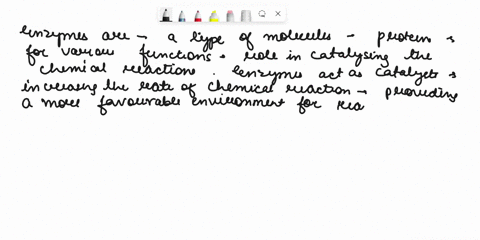 Enzymes are → a type of molecules → proteins
for various functions. role in catalysing the
chemical reactions. Enzymes act as catalysts
increasing the rate of chemical reaction → providing
a more favourable environment for rea